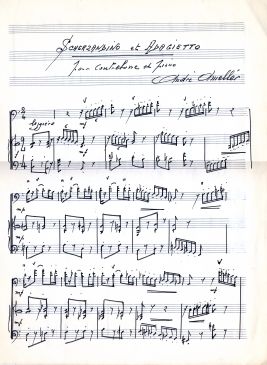 SCHERZANDINO et ADAGIETTO
pour contrebasse et piano
André Ameller
leggiero
mf